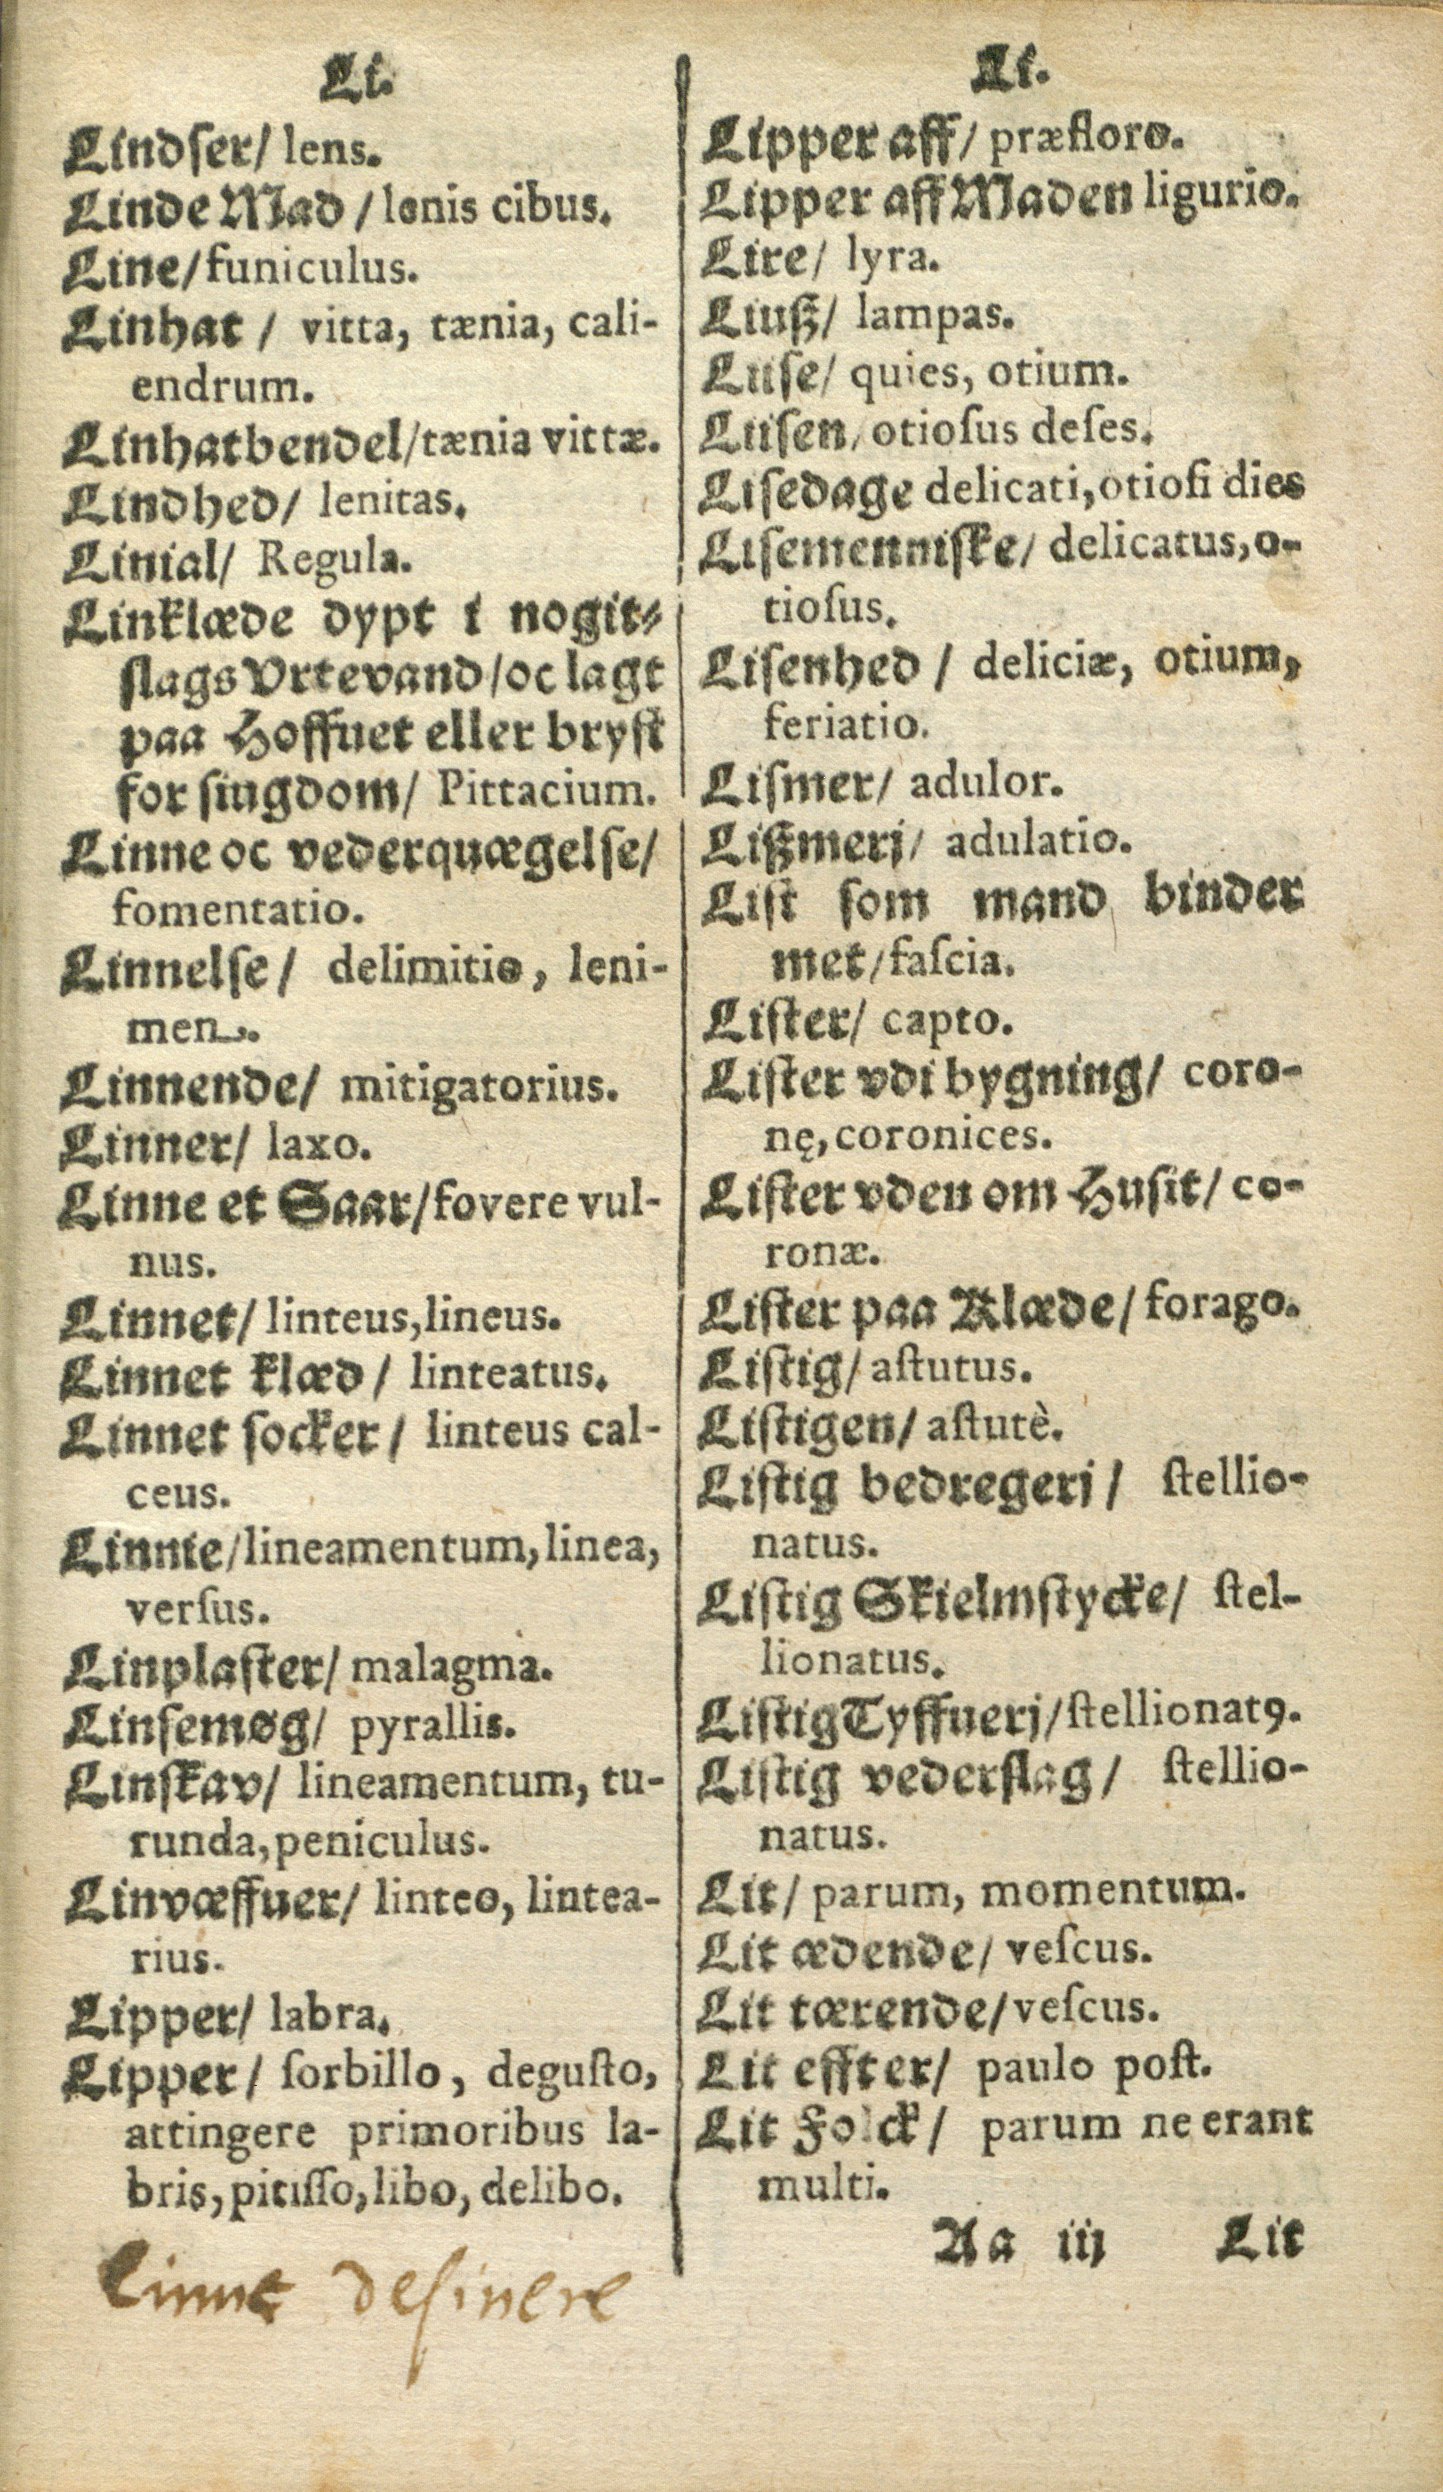 Li.
Lindſer/ lens.
Linde Mad / lenis cibus.
Line/ funiculus.
Linhat / vitta, tænia, cali-
endrum.
Linhatbendel/ tænia vittæ.
Lindhed/ lenitas.
Linial/ Regula.
Linklæde dypt i nogit-
ſlags Vrtevand/ oc lagt
paa Hoffuet eller bryſt
for ſiugdom/ Pittacium.
Linne oc vederquægelſe/
fomentatio.
Linnelſe/ delimitio, leni-
men.
Linnende/ mitigatorius.
Linner/ laxo.
Linne et Saar/ fovere vul-
nus.
Linnet/ linteus, lineus.
Linnet klæd/ linteatus.
Linnet ſocker/ linteus cal-
ceus.
Linnie/ lineamentum, linea,
verſus.
Linplaſter/ malagma.
Linſemøg/ pyrallis.
Linſkav/ lineamentum, tu-
runda, peniculus.
Linvæffuer/ linteo, lintea-
rius.
Lipper/ labra.
Lipper/ ſorbillo, deguſto,
attingere primoribus la-
bris, pitiſſo, libo, delibo.
Linne deſinere
Li.
Lipper aff/ præfloro.
Lipper aff Maden ligurio.
Lire/ lyra.
Liuß/ lampas.
Liiſe/ quies, otium.
Liiſen/ otioſus deſes.
Liſedage delicati, otioſi dies
Liſemenniſke/ delicatus, o-
tioſus.
Liſenhed/ deliciæ, otium,
feriatio.
Liſmer/ adulor.
Lißmerj/ adulatio.
Liſt ſom mand binder
met/ faſcia.
Liſter/ capto.
Liſter vdi bygning/ coro-
nę, coronices.
Liſter vden om Huſit/ co-
ronæ.
Liſter paa Klæde/ forago.
Liſtig/ aſtutus.
Liſtigen/ aſtutè.
Liſtig bedregerj/ ſtellio-
natus.
Liſtig Skielmſtycke/ ſtel-
lionatus.
Liſtig Tyffuerj/ ſtellionatꝰ.
Liſtig vederſlag/ ſtellio-
natus.
Lit/ parum, momentum.
Lit ædende/ veſcus.
Lit tærende/ veſcus.
Lit effter/ paulo poſt.
Lit Folck/ parum ne erant
multi.
Aa iij Lit